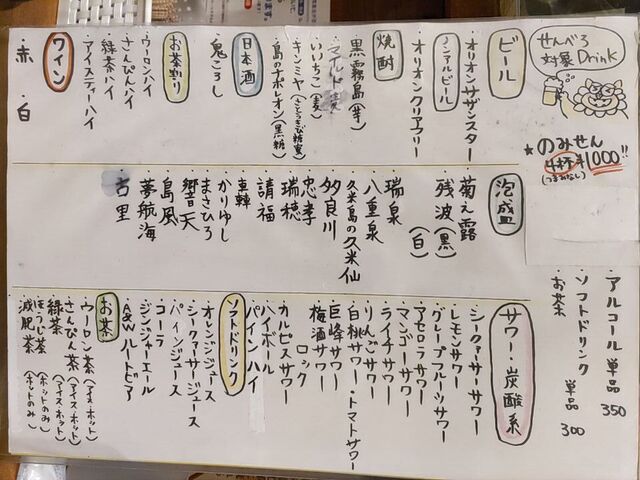 せんべろ
対象Drink
★のみせん
4杯¥1000!!
(つまみなし)
ビール
・オリオンサザンスター
ノンアルビール
・オリオンクリアフリー
焼酎
・黒霧島(芋)
・いいちこ(麦)
・キンミヤ(さとうきび糖蜜)
・島のナポレオン(黒糖)
日本酒
・鬼ころし
お茶割り
・ウーロンハイ
・さんぴんハイ
・緑茶ハイ
・アイスティーハイ
ワイン
・赤・白
泡盛
・菊之露
・残波(黒)(白)
・瑞泉
・八重泉
・久米島の久米仙
・多良川
・忠孝
・瑞穂
・請福
・かりゆし
・まさひろ
・響天
・島風
・夢航海
・古里
アルコール 単品 350
ソフトドリンク 単品 300
お茶
サワー・炭酸系
・シークヮーサーサワー
・レモンサワー
・グレープフルーツサワー
・アセロラサワー
・マンゴーサワー
・ライチサワー
・りんごサワー
・白桃サワー・トマトサワー
・巨峰サワー
・梅酒サワー
ロック
・カルピスサワー
・ハイボール
・パインハイ
ソフトドリンク
・オレンジジュース
・シークヮーサージュース
・パインジュース
・コーラ
・ジンジャーエール
・A&Wルートビア
お茶
・ウーロン茶(アイス・ホット)
・さんぴん茶(アイス・ホット)
・緑茶(アイス・ホット)
・ほうじ茶(ホットのみ)
・減肥茶(ホットのみ)